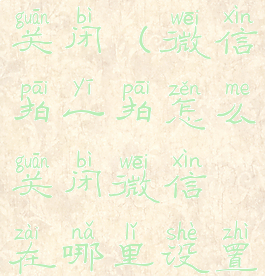 guān bì wēi xìn
关闭（微信
pāi yī pāi zěn me
拍一拍怎么
guān bì wēi xìn
关闭微信
zài nǎ lǐ shè zhì
在哪里设置